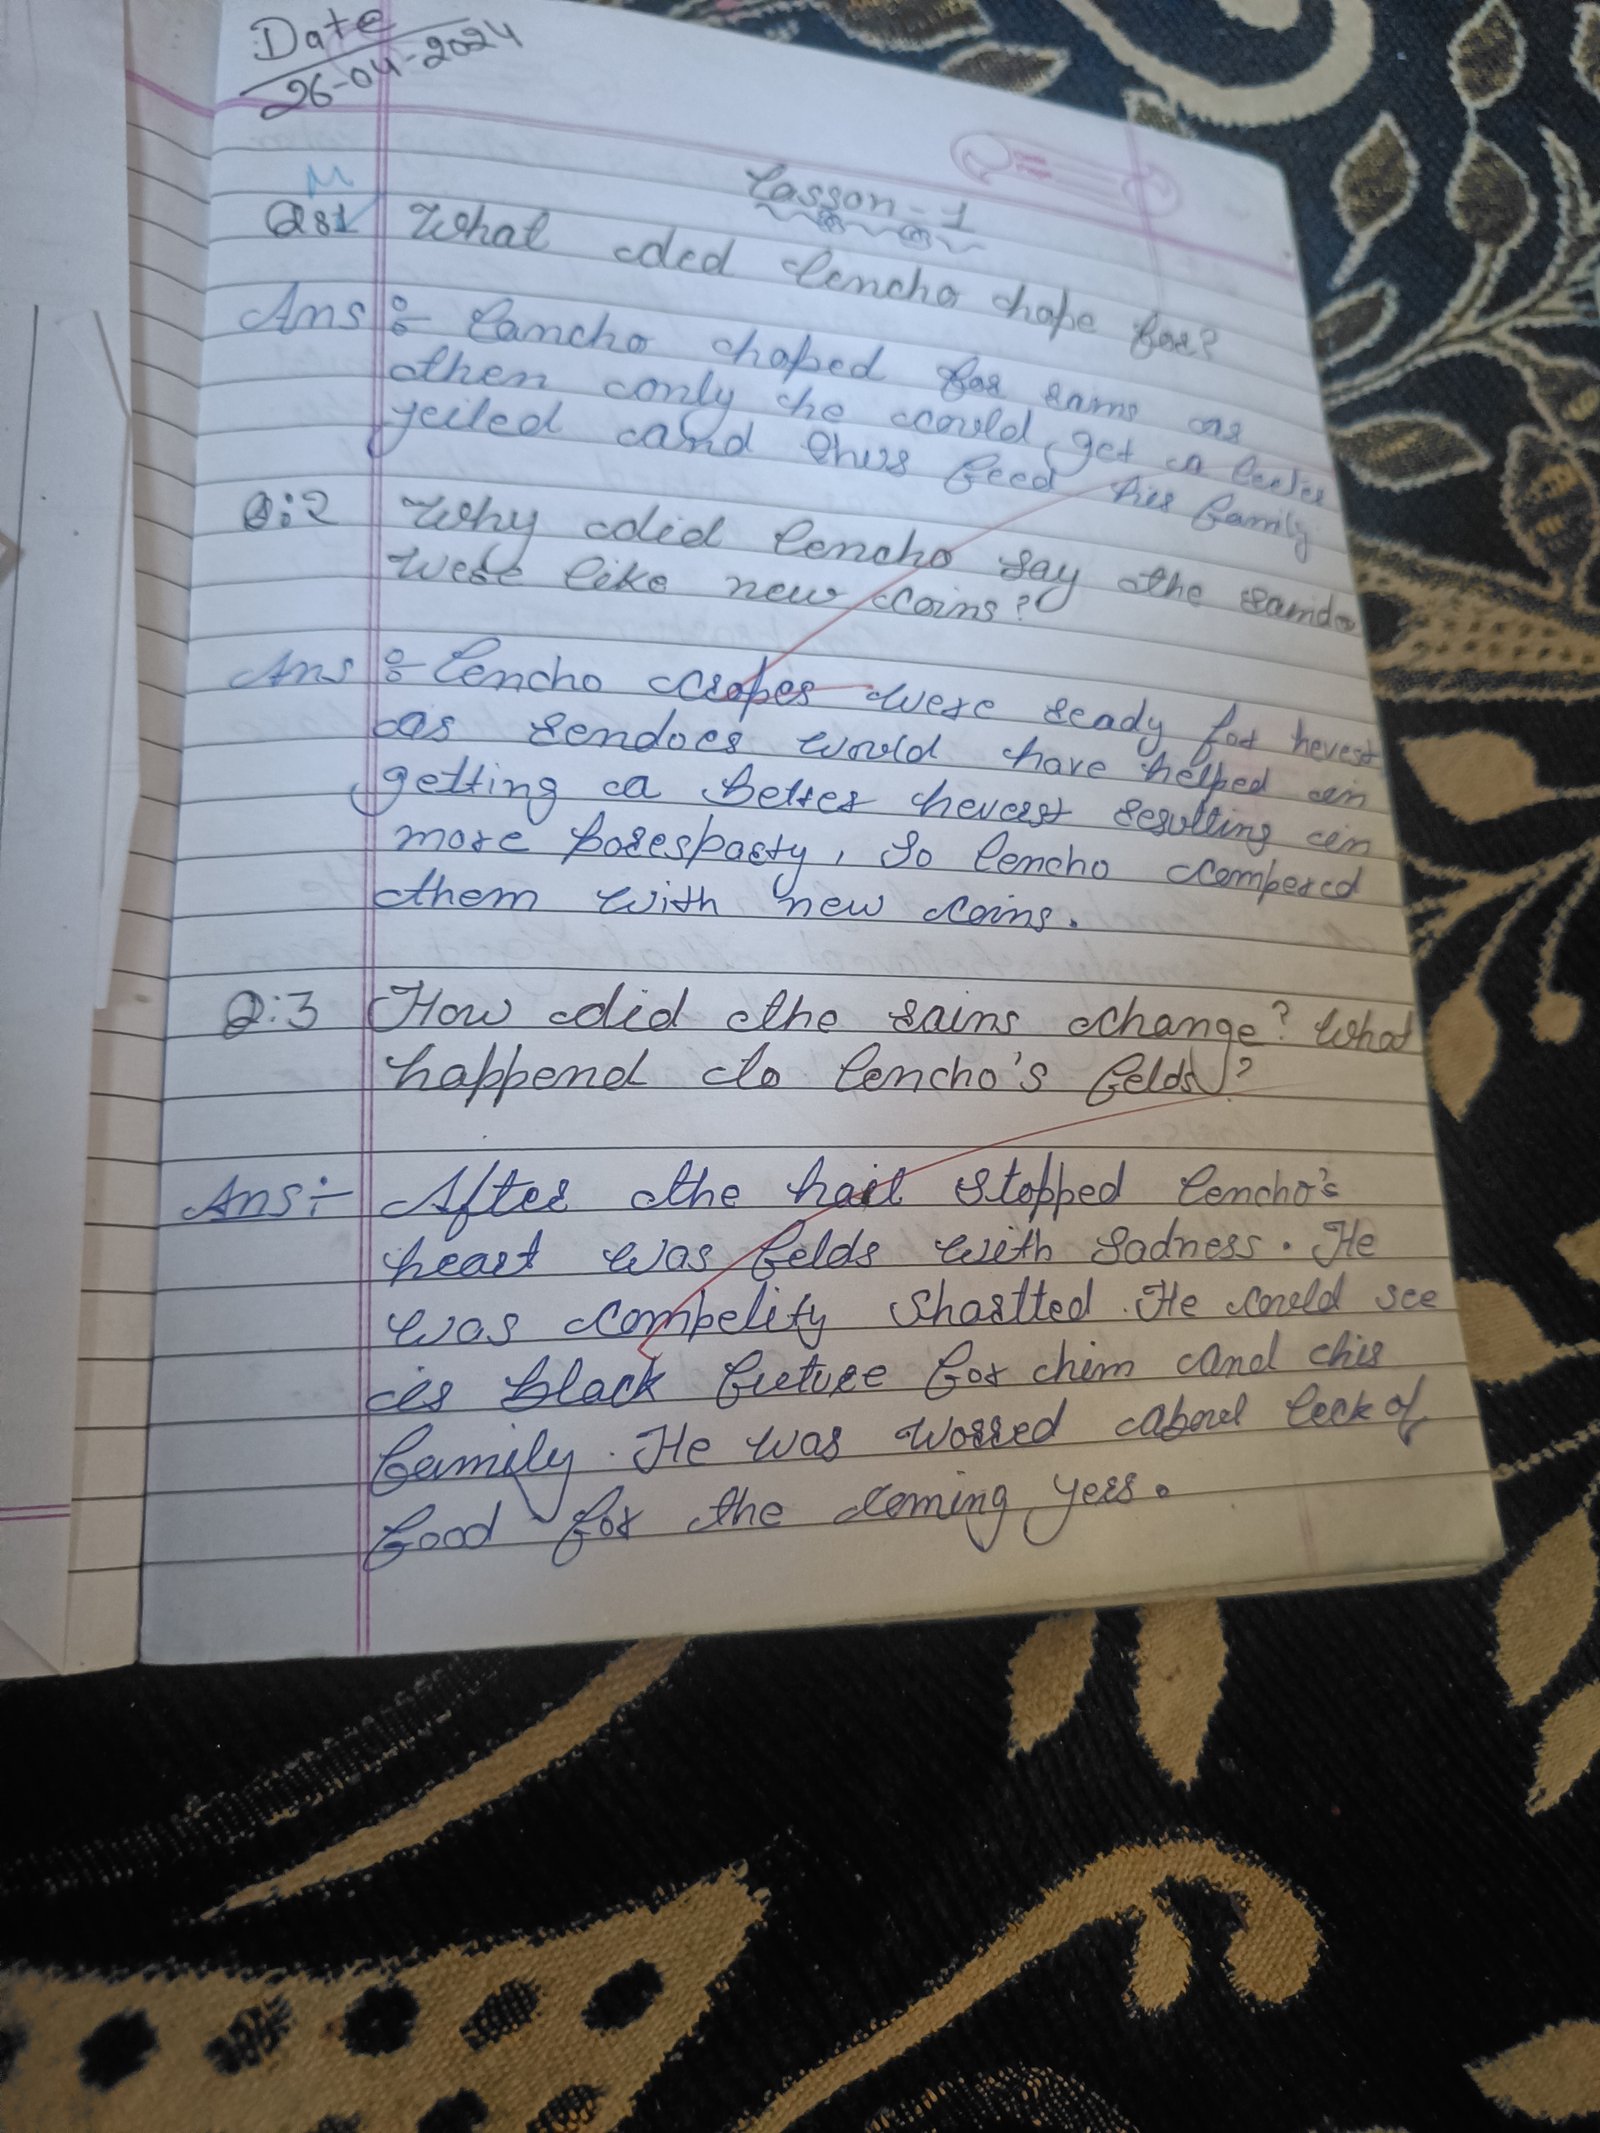 Date
26-04-2024
Lasson-1
Qs1 What did Lencho hope for?
Ans :- Lancho hoped for rains as
then only he could get a better
yeiled and thus feed his family
Q:2 Why did Lencho say the
were like new coins?
Ans :- Lencho cropes were ready for hevest
as rendoes would have helped in
getting a better heverst resulting in
more porespasty, So Lencho compered
them with new coins.
Q:3 How did the rains change? What
happend to Lencho's felds?
Ans :- After the hail stopped Lencho's
heart was felds with sadness. He
was compelity Shartted. He could see
is black future for him and his
family. He was worred about leck of
food for the coming yers.